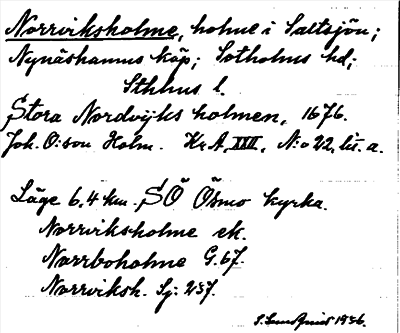 Norrviksholme, holme i Saltsjön;
Nynäshamns köp; Sotholms hd;
Sthlms l.
Stora Nordvijks holmen, 1676.
Joh. O:son Holm. Kr.A, XXII, N:o 22, lit. a.
Läge 6,4 km. SÖ Ösmo kyrka.
Norrviksholme ek.
Norrboholme G. 67.
Norrviksh. Sj: 237.
1936.